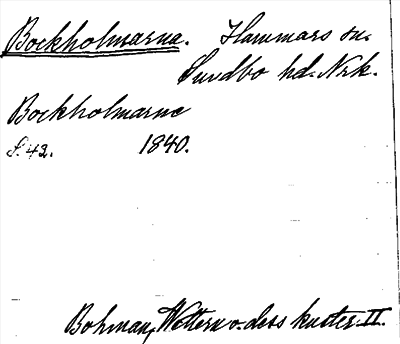 Bockholmarna. Hammars sn.
Sundbo hd. Nrk.
Bockholmarne
S. 42. 1840.
Bohman, Wettern o. dess kuster. II.